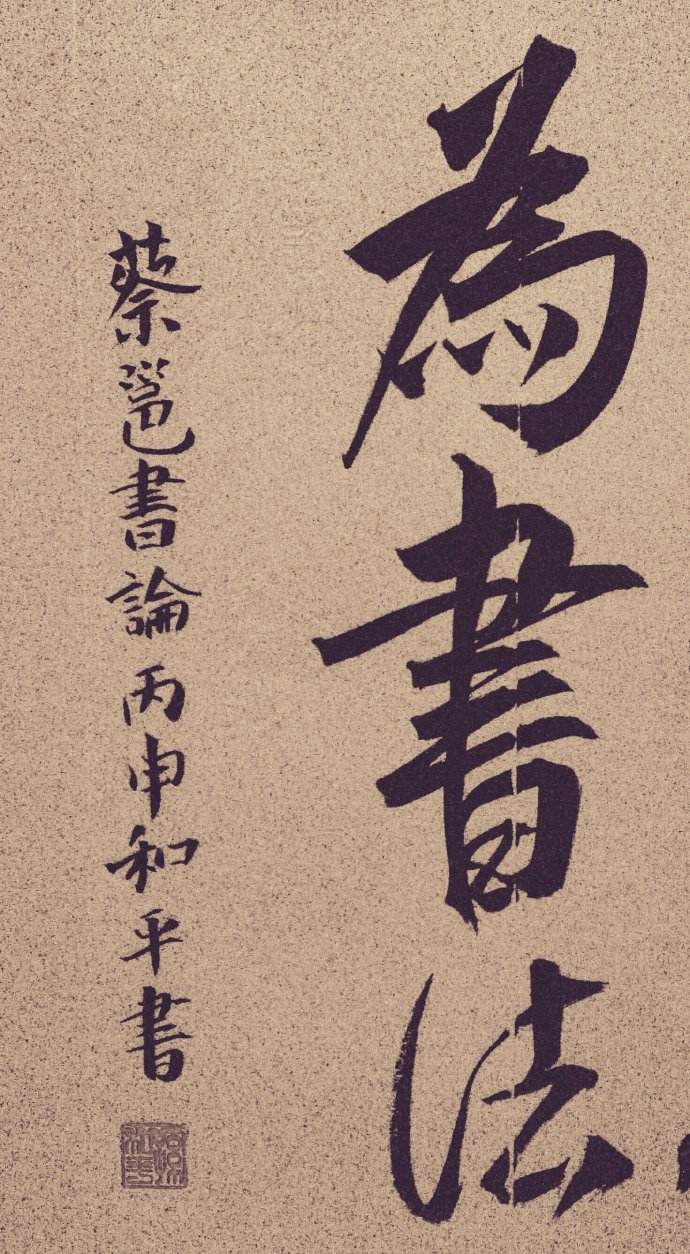 為書法
蔡邕書論丙申和平書